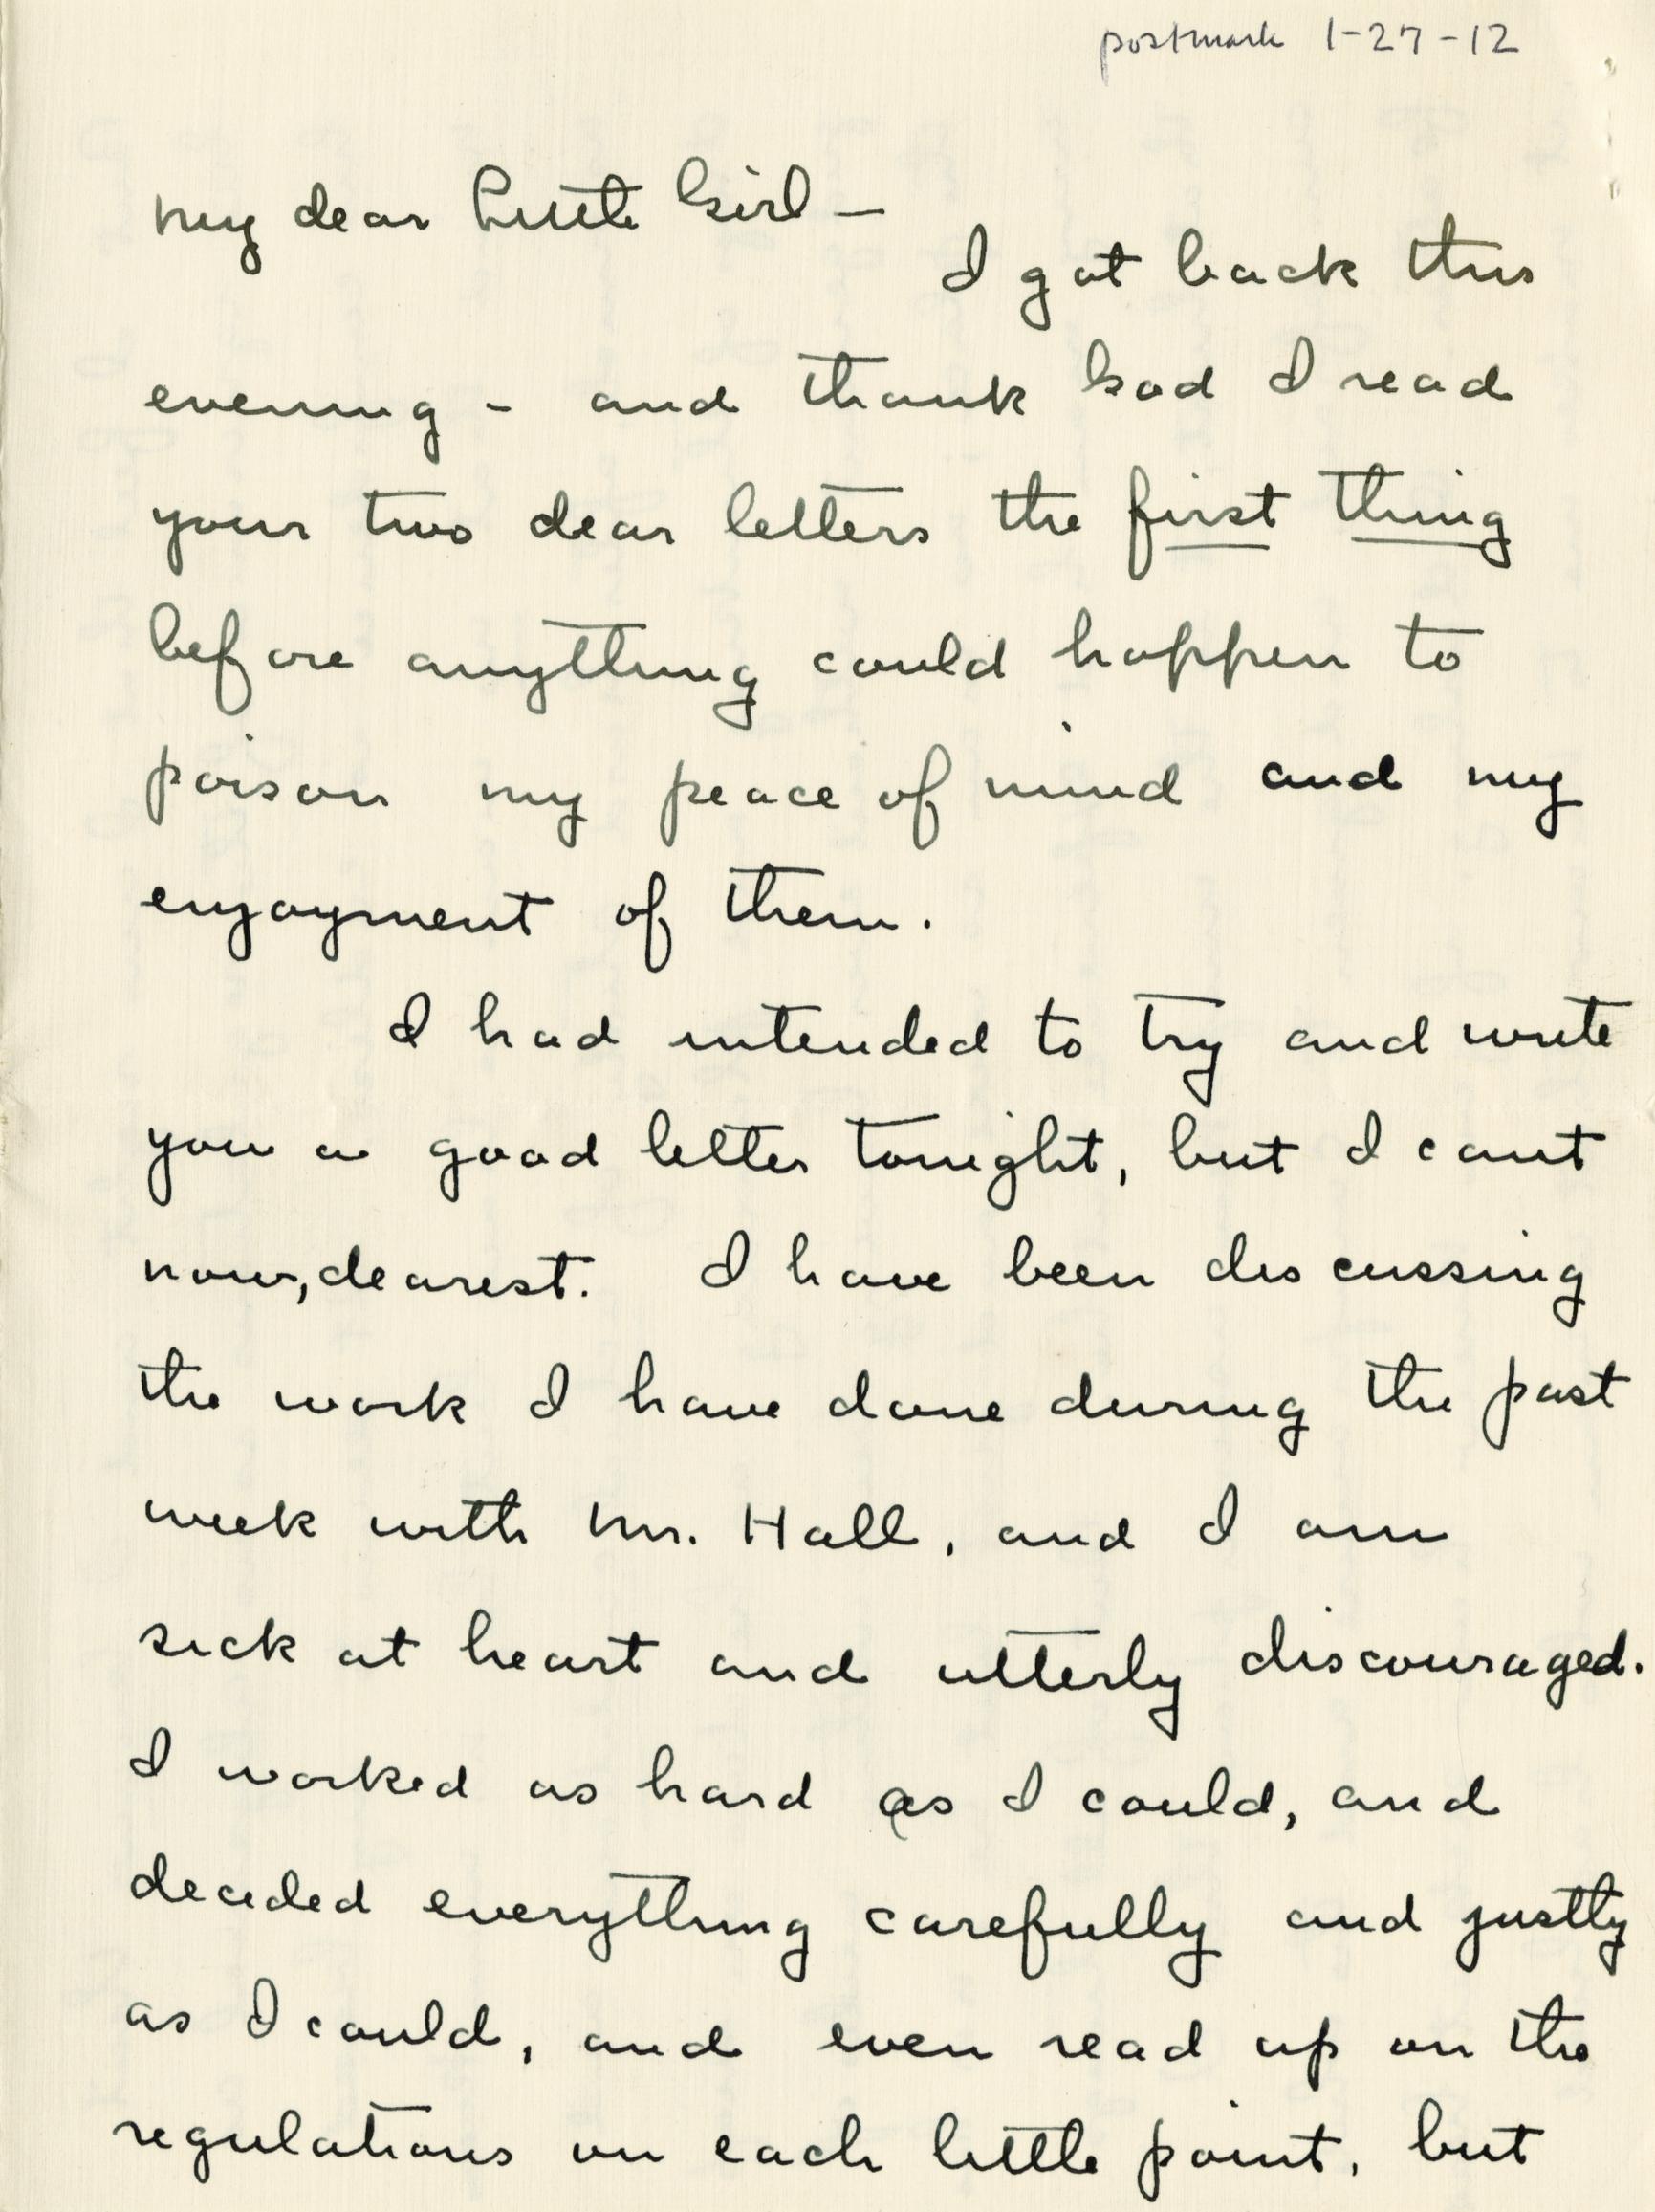 postmark 1-27-12
My dear Little Girl —
I got back this
evening - and thank God I read
your two dear letters the first thing
before anything could happen to
poison my peace of mind and my
enjoyment of them.
I had intended to try and write
you a good letter tonight, but I cant
now, dearest. I have been discussing
the work I have done during the past
week with Mr. Hall, and I am
sick at heart and utterly discouraged.
I worked as hard as I could, and
decided everything carefully and justly
as I could, and even read up on the
regulations on each little point, but